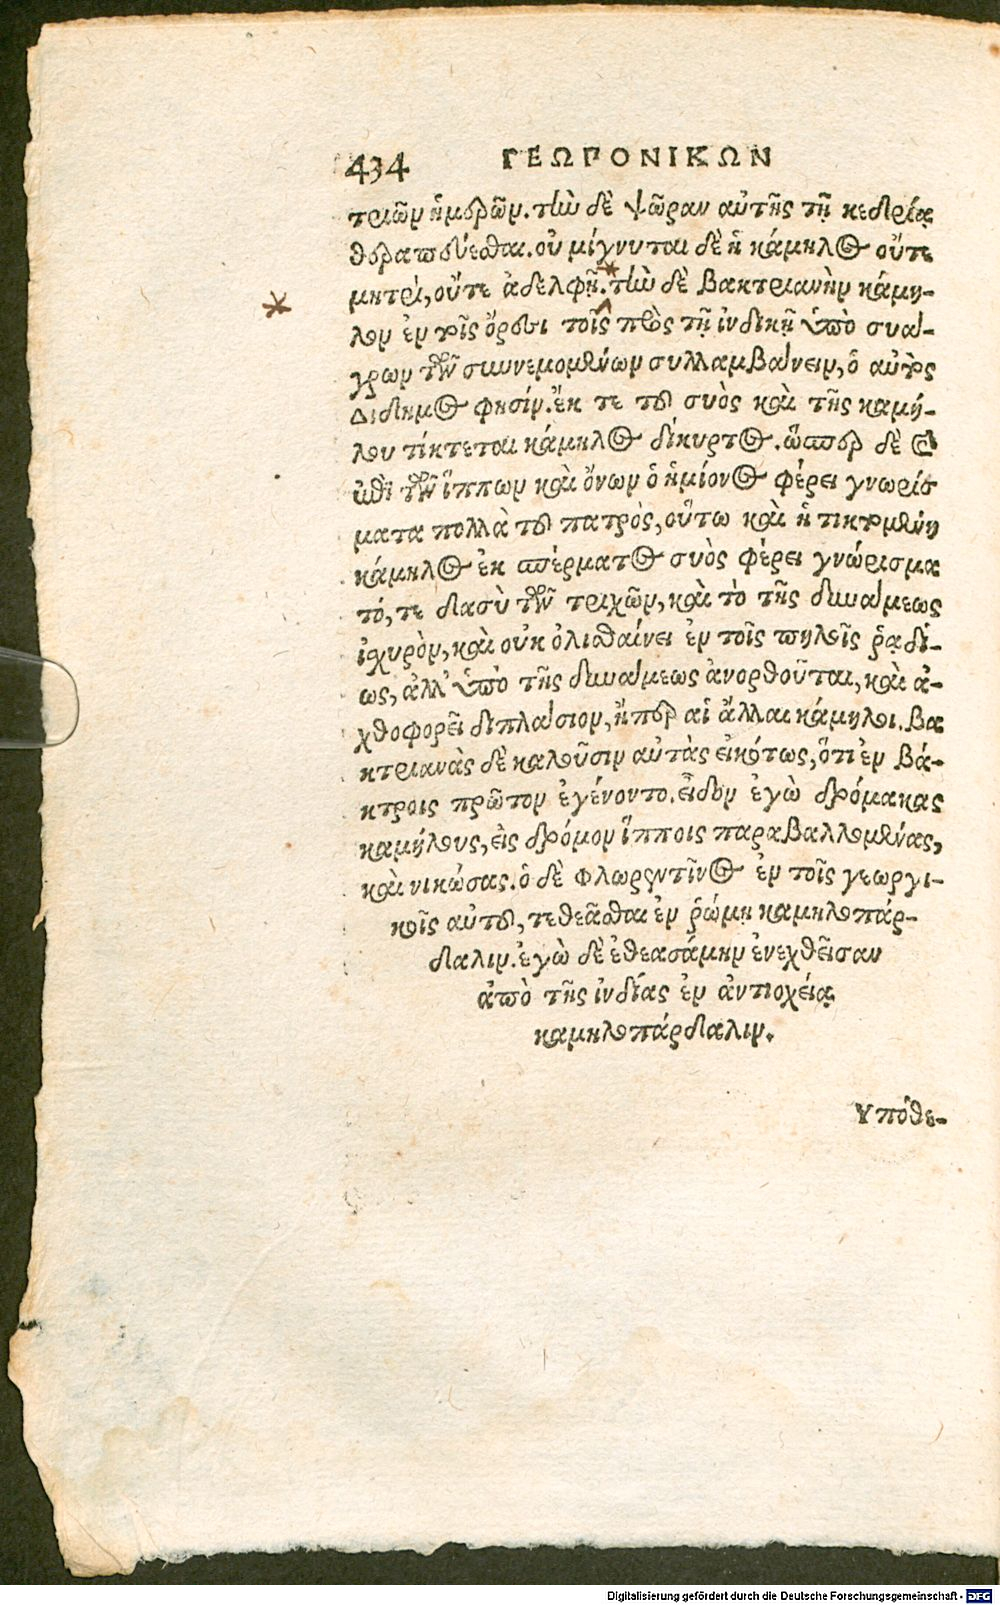 434 ΓΕΩΠΟΝΙΚΩΝ
τριῶν ἡμερῶν. τὴν δὲ ψῶραν αὐτῆς τῇ κεδρίᾳ
θεραπεύεσθαι. οὐ μίγνυται δὲ ἡ κάμηλος οὔτε
μητρὶ, οὔτε ἀδελφῇ. τὴν δὲ βακτριανὴν κάμη-
λον ἐν τοῖς ὄρεσι τοῖς πρὸς τῇ ἰνδικῇ ὑπὸ συά-
γρων τῶν συννεμομένων συλλαμβάνειν, ὁ αὐτὸς
Διδυμος φησίν. ἔκ τε τοῦ συὸς καὶ τῆς καμή-
λου τίκτεται κάμηλος δίκυρτος. ὥσπερ δὲ ὁ
ἐπὶ τῶν ἵππων καὶ ὄνων ὁ ἡμίονος φέρει γνωρίσ
ματα πολλὰ τοῦ πατρὸς, οὕτω καὶ ἡ τικτομένη
κάμηλος ἐκ σπέρματος συὸς φέρει γνώρισμα
τό, τε δασὺ τῶν τριχῶν, καὶ τὸ τῆς δυνάμεως
ἰσχυρὸν, καὶ οὐκ ὀλισθαίνει ἐν τοῖς πηλοῖς ῥᾳδί-
ως, ἀλλ' ὑπὸ τῆς δυνάμεως ἀνορθοῦται, καὶ ἀ-
χθοφορεῖ διπλάσιον, ἤπερ αἱ ἄλλαι κάμηλοι. βα
κτριανὰς δὲ καλοῦσιν αὐτὰς εἰκότως, ὅτι ἐν βά-
κτροις πρῶτον ἐγένοντο. εἶδον ἐγὼ δρόμακας
καμήλους, εἰς δρόμον ἵπποις παραβαλλομένας,
καὶ νικώσας. ὁ δὲ Φλωρεντῖνος ἐν τοῖς γεωργι-
κοῖς αὐτοῦ, τεθεᾶσθαι ἐν ῥώμῃ καμηλοπάρ-
δαλιν. ἐγὼ δὲ ἐθεασάμην ἐνεχθεῖσαν
ἀπὸ τῆς ἰνδίας ἐν ἀντιοχείᾳ
καμηλοπάρδαλιν.
Υπόθε-
Digitalisierung gefördert durch die Deutsche Forschungsgemeinschaft - DFG